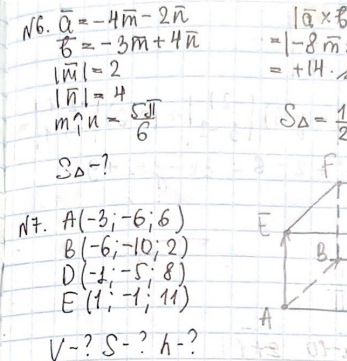 №6. a̅ = -4m̅ - 2n̅
b̅ = -3m̅ + 4n̅
|m̅| = 2
|n̅| = 4
m^n = 5π/6
S△ - ?
|a̅ × b
= |-8m̅
= +14.
S△ = 1/2
№7. A(-3; -6; 6)
B(-6; -10; 2)
D(-1; -5; 8)
E(1; -1; 11)
V - ? S - ? h - ?
F
E
B
A